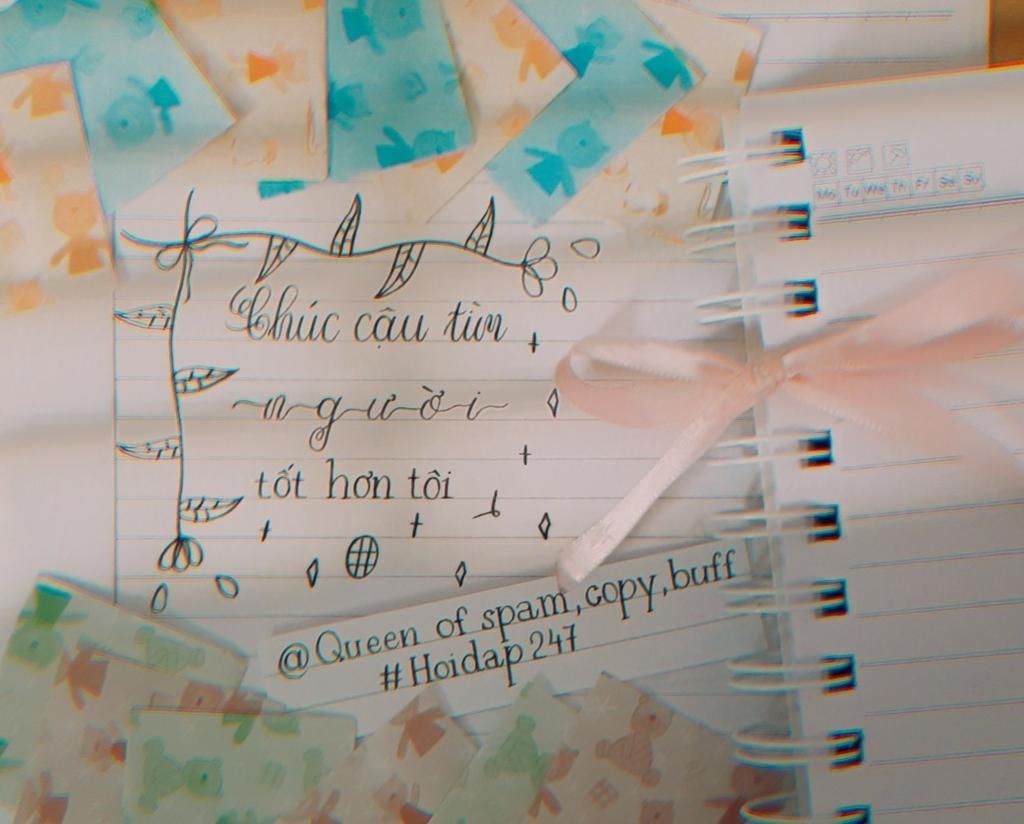 Chúc cậu tìm
người
tốt hơn tôi
@Queen of spam,copy,buff
#Hoidap247
Mo Tu We Th Fr Sa Su